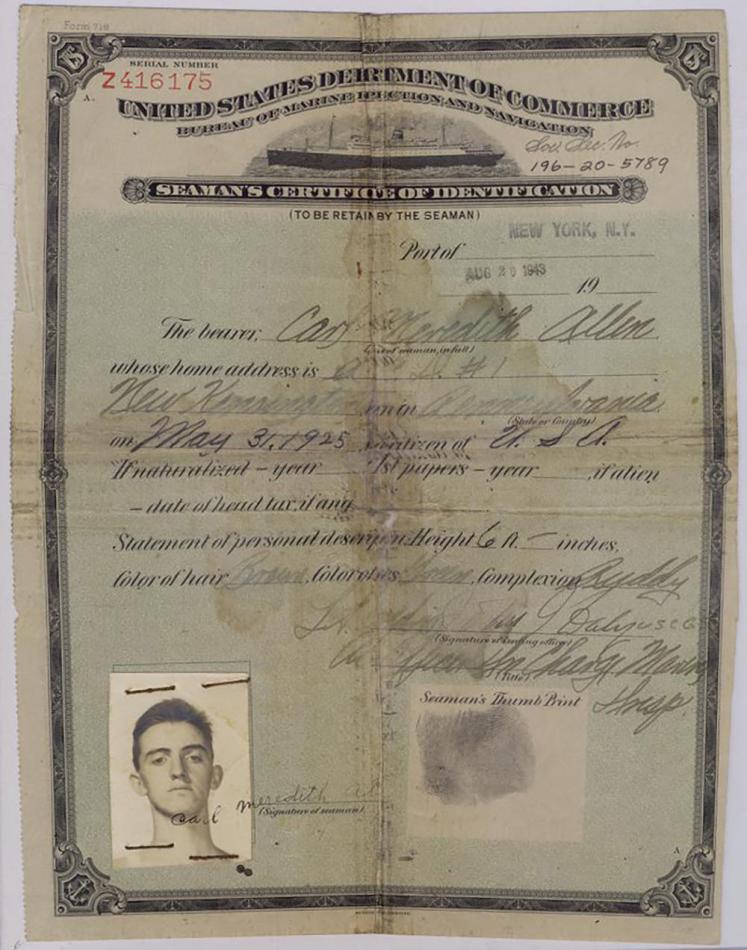 Form 718
SERIAL NUMBER
Z416175
A.
UNITED STATES DERTMENT OF COMMERCE
BUREAU OF MARINE IPECTION AND NAVIGATION
Soc. Sec. No.
196-20-5789
SEAMAN'S CERTIFICTE OF IDENTIFICATION
(TO BE RETAIN BY THE SEAMAN)
Port of NEW YORK, N.Y.
AUG 20 1943 19
The bearer, Carl Meredith Allen
whose home address is #1
New Kensington in Pennsylvania
(State or Country)
on May 31, 1925 citizen of U. S. A.
If naturalized - year 1st papers - year , if alien
- date of head tax, if any
Statement of personal descripn: Height 6 ft. - inches,
Color of hair Brown, Color of es, Complexion Ruddy
(Signature of issuing officer)
in Charge Marine
(Title)
Insp.
Seaman's Thumb Print
Carl Meredith
(Signature of seaman)
A